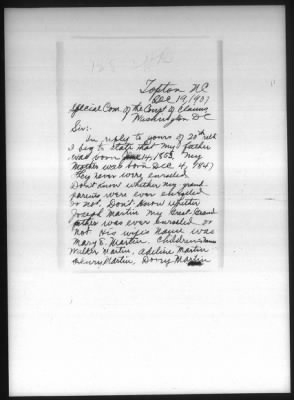 Topton NC
Dec 19, 1907
Special Com. of the Court of Claims
Washington DC
Sir:-
In reply to yours of 20th ult
I beg to state that my father
was born June 14, 1853. My
Mother was born Dec 4, 1847
They never were enrolled
Don't know whether my grand
parents were ever enrolled
or not. Don't know whether
Joseph Martin my Great Grand
father was ever enrolled or
not His wife's Name was
Mary E. Martin. Children's Names
Walker Martin, Adeline Martin
Henry Martin, Dovry Martin